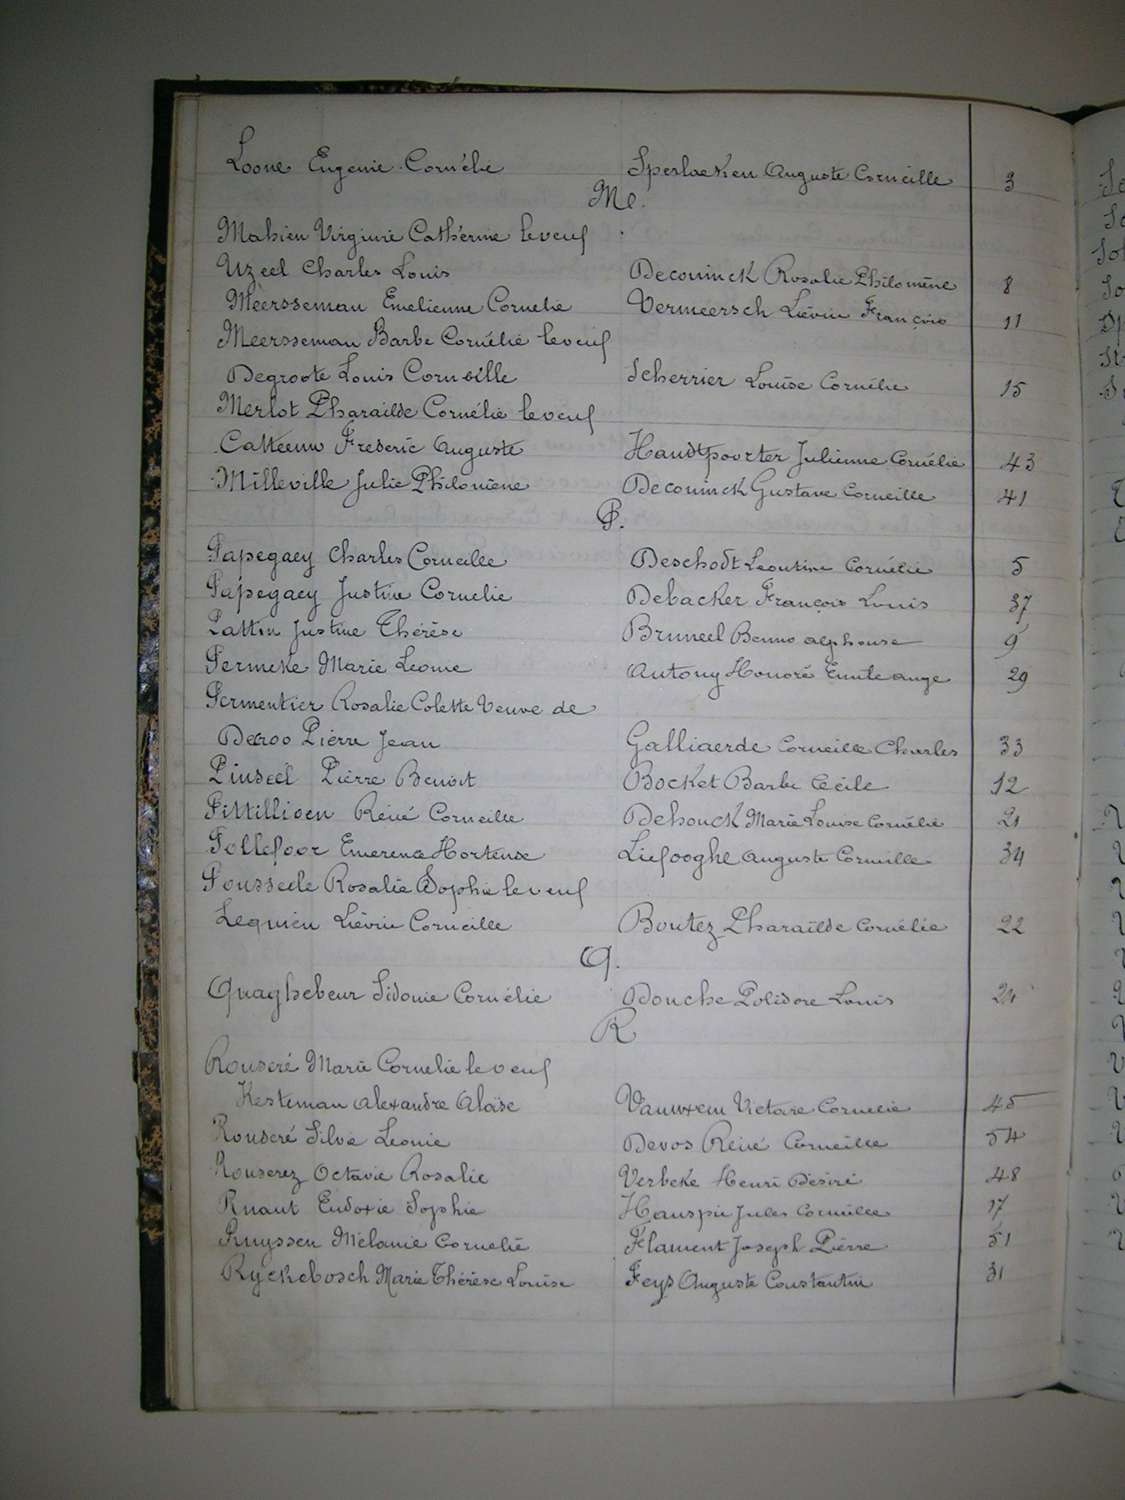 Loone Eugenie Cornélie Sperlaeken Auguste Corneille 3
M.
Mahieu Virginie Catherine le veuf
Uzeel Charles Louis Deconinck Rosalie Philomène 8
Meersseman Emelienne Cornelie Vermeersch Liévin François 11
Meersseman Barbe Cornélie le veuf
Degroote Louis Corneille Scherrier Louise Cornélie 15
Merlot Pharaïlde Cornélie le veuf
Catteeuw Frederic Auguste Handtpoorter Julienne Cornélie 43
Milleville Julie Philomène Deconinck Gustave Corneille 41
P.
Papegaey Charles Corneille Deschodt Leontine Cornélie 5
Papegaey Justine Cornelie Debacker François Louis 37
Pattin Justine Thérèse Bruneel Benno alphonse 9
Permeke Marie Leonie Antony Honoré Emile ange 29
Permentier Rosalie Colette Veuve de
Decroo Pierre Jean Galliaerde Corneille Charles 33
Pinseel Pierre Benoit Bocket Barbe Cecile 12
Pittillioen Réné Corneille Dehouck Marie Louise Cornélie 21
Pollefoor Emerence Hortense Liefooghe auguste Corneille 34
Pousseele Rosalie Sophie le veuf
Lequieu Liévin Corneille Boutez Pharaïlde Cornélie 22
Q.
Quaghebeur Sidonie Cornélie Douche Polidore Louis
R
Rouseré Marie Cornelie le veuf
Kesteman Alexandre Aloïse Vanuxem Victoire Cornelie 45
Rouseré Silvie Leonie Devos Réné Corneille 54
Rouserez Octavie Rosalie Verbeke Henri Désiré 48
Ruaut Eudoxie Sophie Hauspie Jules Corneille 17
Ruyssen Mélanie Cornelie Flament Joseph Pierre 51
Ryckebosch Marie Thérèse Louise Feys Auguste Constantin 31